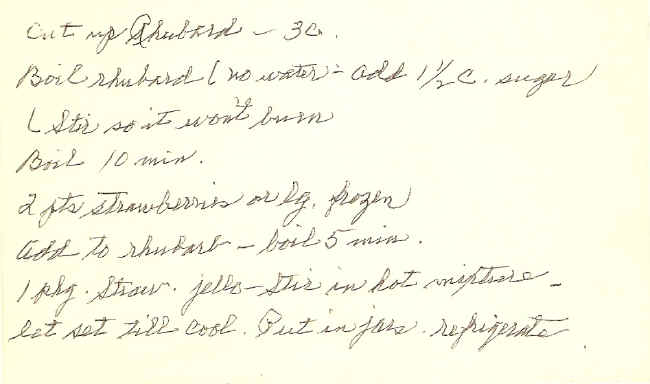 Cut up Rhubard - 3c.
Boil rhubard (no water - add 1½ c. sugar)
(Stir so it won't burn
Boil 10 min.
2 pts strawberries or lg. frozen
Add to rhubarb - boil 5 min.
1 pkg. Straw. jello - Stir in hot mixture -
let set till cool. Put in jars. refrigerate